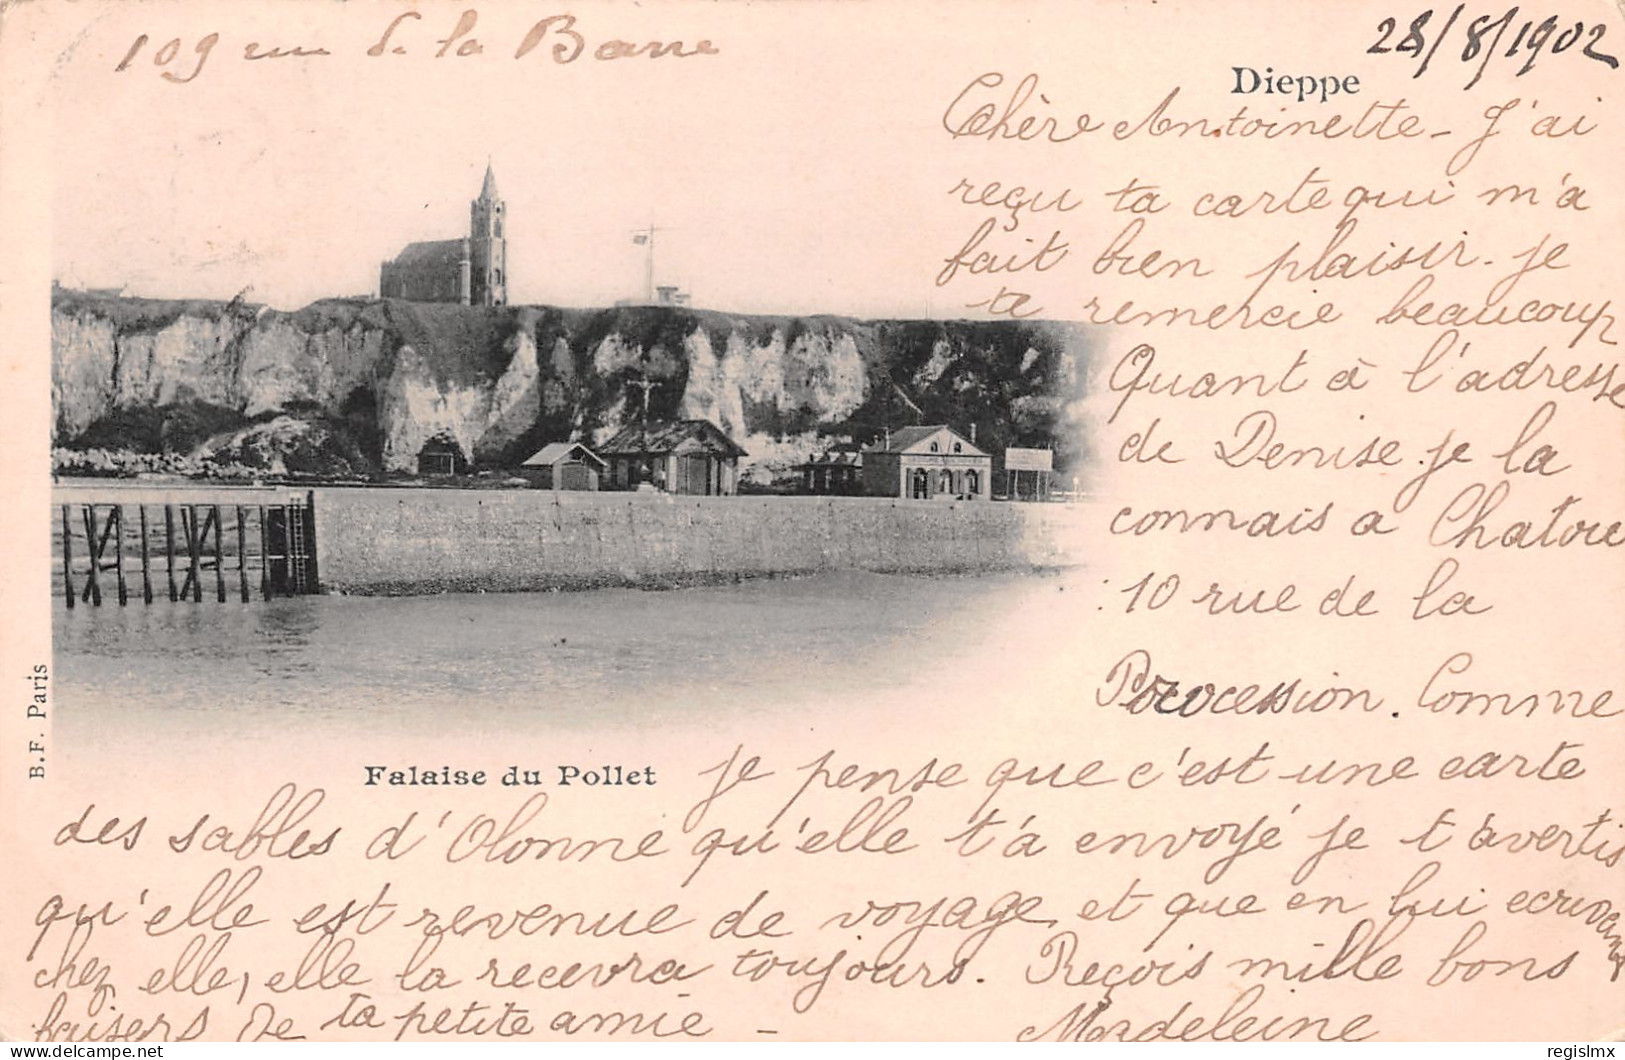 109 rue de la Barre
28/8/1902
Dieppe
Chère Antoinette - J'ai
reçu ta carte qui m'a
fait bien plaisir. je
te remercie beaucoup
Quant à l'adresse
de Denise je la
connais a Chatou
10 rue de la
Procession. Comme
je pense que c'est une carte
des sables d'Olonne qu'elle t'a envoyé je t'avertis
qu'elle est revenue de voyage et que en lui ecrivant
chez elle, elle la recevra toujours. Reçois mille bons
baisers de ta petite amie -
Madeleine
Falaise du Pollet
B.F. Paris
delcampe.net
regislmx